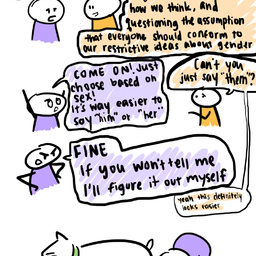 how we think, and
questioning the assumption
that everyone should conform to
our restrictive ideas about gender
COME ON! Just
choose based on
sex!
It's way easier to
say "him" or "her"
Can't you
just say "them"?
FINE
If you won't tell me
I'll figure it out myself
yeah this definitely
looks easier